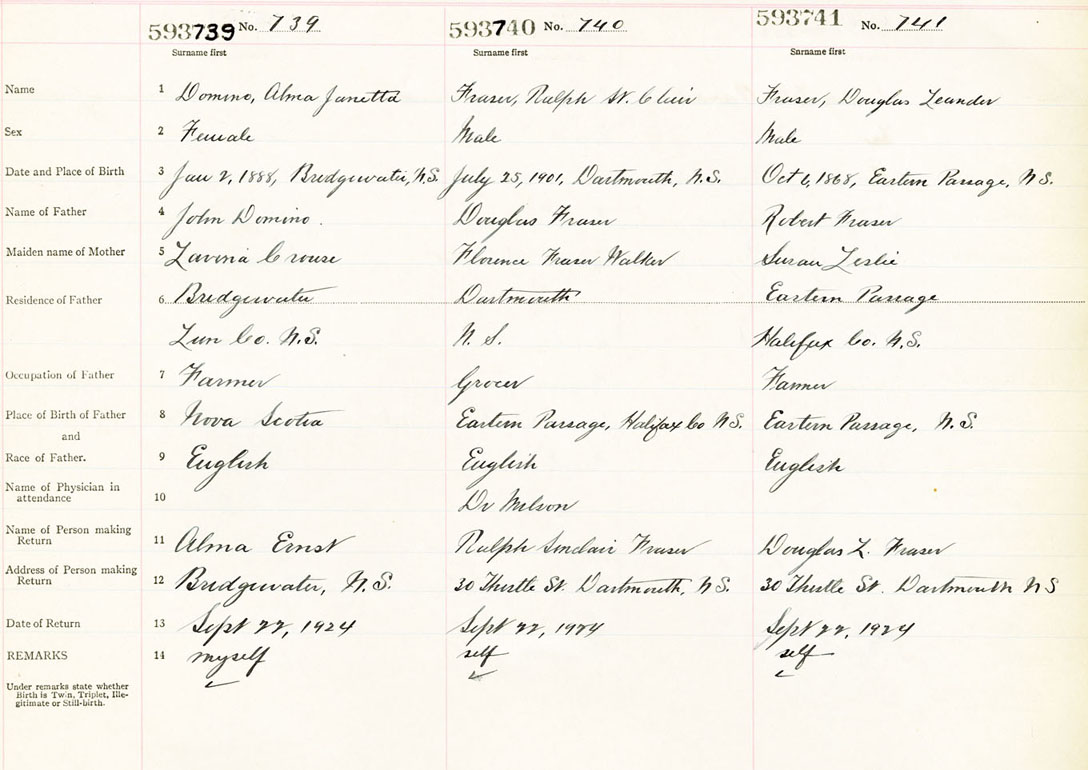 593739 No. 739 593740 No. 740 593741 No. 741
Surname first Surname first Surname first
Name 1 Domino, Alma Janetta Fraser, Ralph St. Clair Fraser, Douglas Leander
Sex 2 Female Male Male
Date and Place of Birth 3 Jan 2, 1888, Bridgewater, N.S. July 25, 1901, Dartmouth, N.S. Oct 6, 1868, Eastern Passage, N.S.
Name of Father 4 John Domino. Douglas Fraser Robert Fraser
Maiden name of Mother 5 Lavinia Crouse Florence Fraser Walker Susan Leslie
Residence of Father 6 Bridgewater Dartmouth Eastern Passage
Lun Co. N.S. N. S. Halifax Co. N.S.
Occupation of Father 7 Farmer Grocer Farmer
Place of Birth of Father 8 Nova Scotia Eastern Passage, Halifax Co N.S. Eastern Passage, N.S.
and
Race of Father. 9 English English English
Name of Physician in
attendance 10 Dr Milson
Name of Person making
Return 11 Alma Ernst Ralph Sinclair Fraser Douglas L. Fraser
Address of Person making
Return 12 Bridgewater, N.S. 30 Thistle St. Dartmouth, N.S. 30 Thistle St. Dartmouth N S
Date of Return 13 Sept 22, 1924 Sept 22, 1924 Sept 22, 1924
REMARKS 14 myself self self
Under remarks state whether
Birth is Twin, Triplet, Ille-
gitimate or Still-birth.